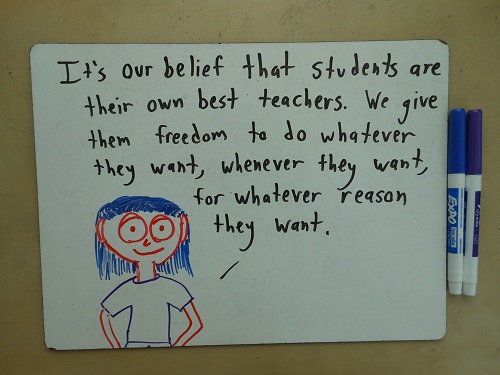 It's our belief that students are
their own best teachers. We give
them freedom to do whatever
they want, whenever they want,
for whatever reason
they want.
EXPO